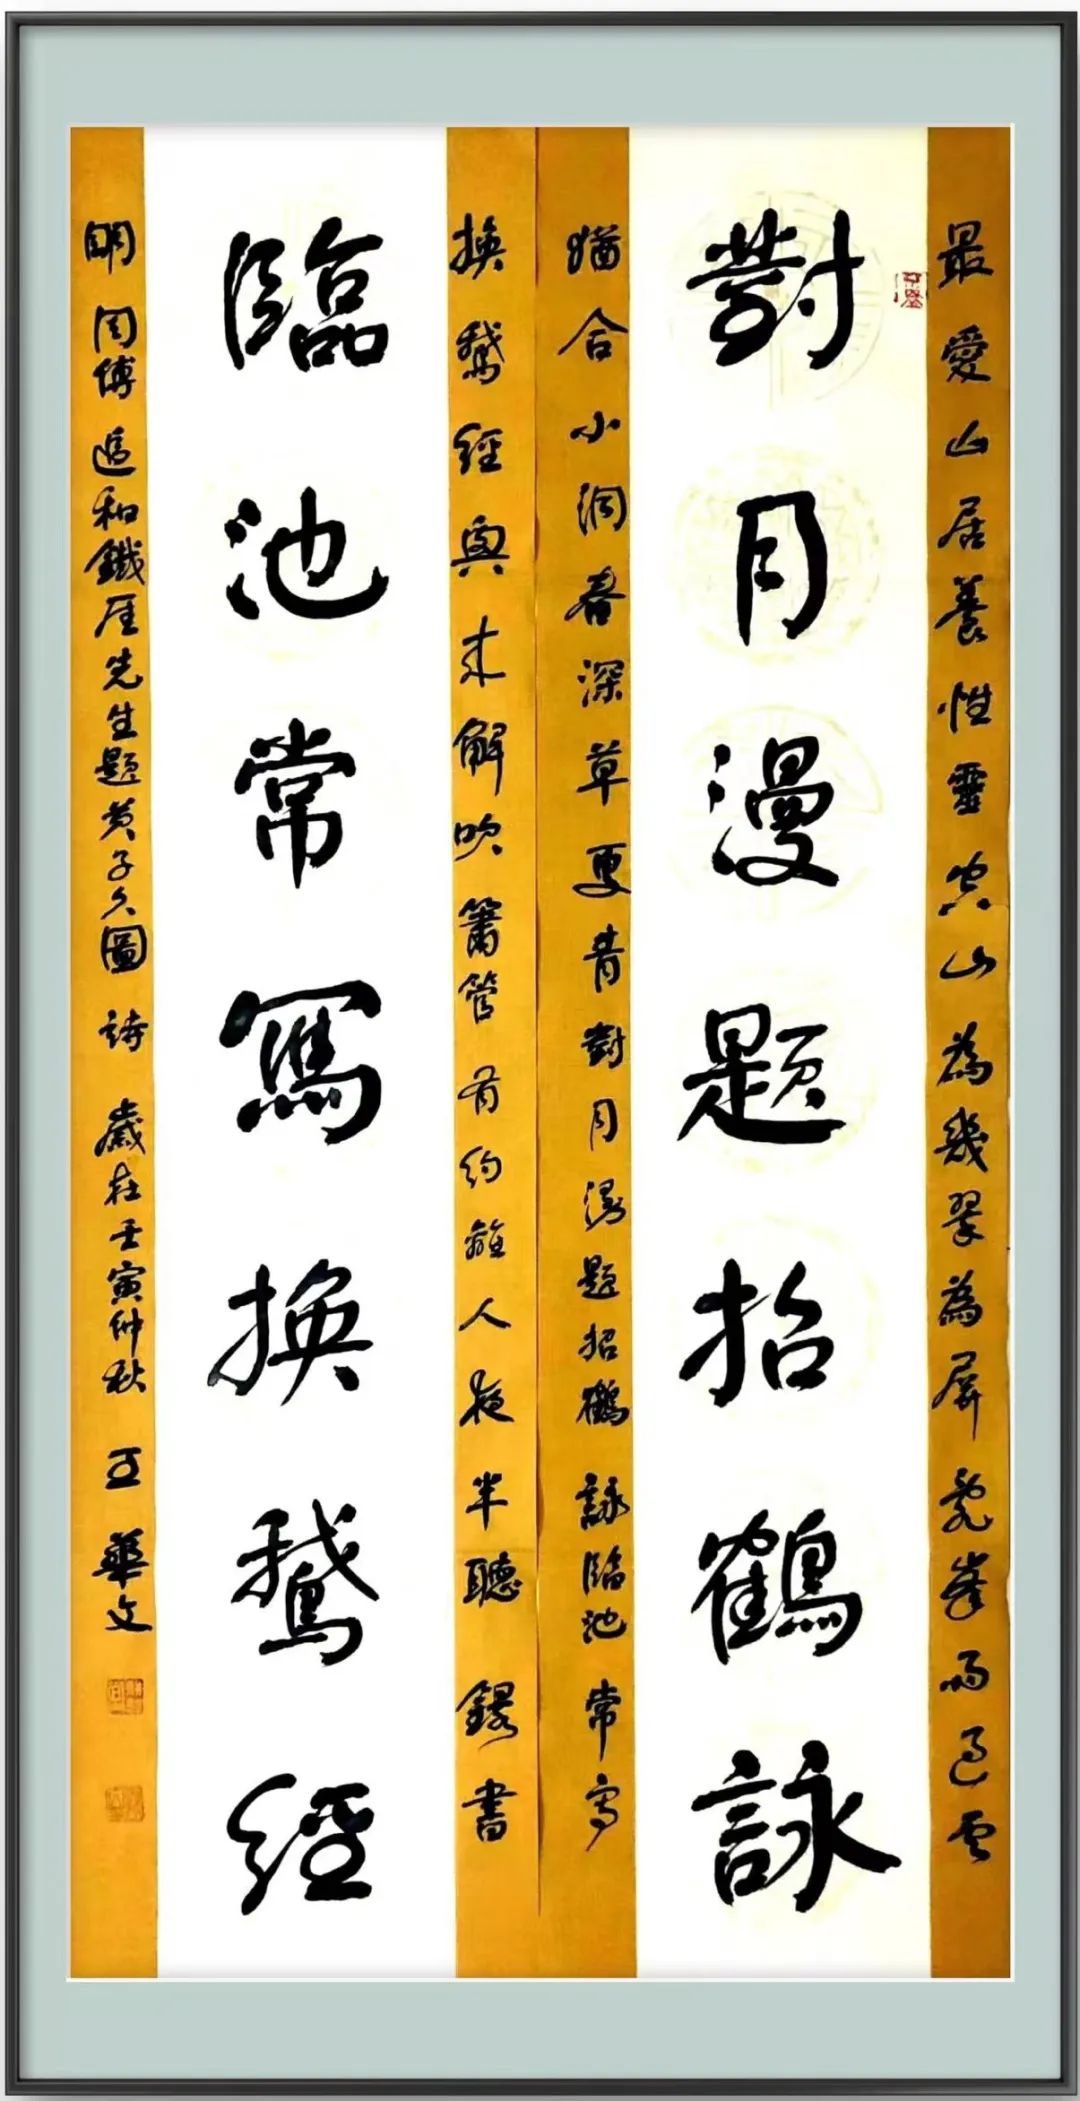 最愛山居養性靈空山為幾翠為屏亂峯雨過雲
對月漫題招鶴詠
猶合小洞春深草更青對月漫題招鶴詠臨池常寫
換鵞經與來解吹簫管有約誰人夜半聽 錄書
臨池常寫換鵞經
明周傅追和鐵厓先生題黃子久圖詩 歲在壬寅仲秋 王華文